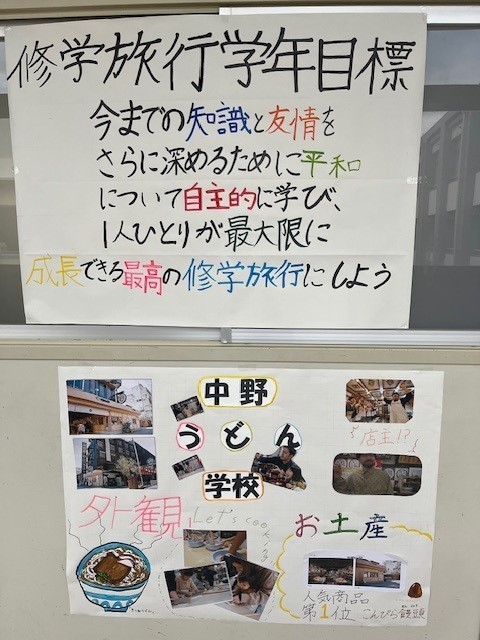 修学旅行学年目標
今までの知識と友情を
さらに深めるために平和
について自主的に学び、
1人ひとりが最大限に
成長できる最高の修学旅行にしよう
中野
うどん
学校
店主!?
外観
Let's cooking
お土産
人気商品
第1位 こんぴら饅頭